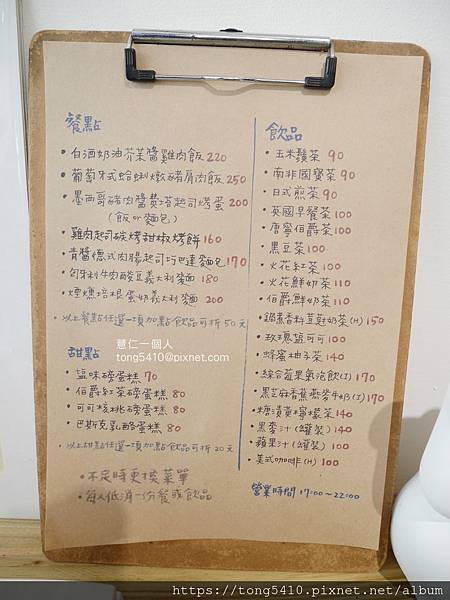 餐點
• 白酒奶油芥茉醬雞肉飯 220
• 葡萄牙式蛤蜊燉豬肩肉飯 250
• 墨西哥豬肉醬費塔起司烤蛋 200
(飯or麵包)
• 雞肉起司碳烤甜椒烤餅 160
• 青醬德式肉腸起司巧巴達麵包 170
• 匈牙利牛肉酸豆義大利麵 180
• 煙燻培根蛋奶義大利麵 200
• 以上餐點任選一項加點飲品可折50元
甜點
• 鹽味磅蛋糕 70
• 伯爵紅茶磅蛋糕 80
• 可可核桃磅蛋糕 80
• 巴斯克乳酪蛋糕 80
• 以上甜點任選一項加點飲品可折20元
• 不定時更換菜單
• 每人低消一份餐或飲品
飲品
• 玉米鬚茶 90
• 南非國寶茶 90
• 日式煎茶 90
• 英國早餐茶 100
• 唐寧伯爵茶 100
• 黑豆茶 100
• 火花紅茶 100
• 火花鮮奶茶 110
• 伯爵鮮奶茶 110
• 鍋煮香料荳蔻奶茶(H) 150
• 玫瑰鹽可可 100
• 蜂蜜柚子茶 140
• 綜合莓果氣泡飲(I) 170
• 黑芝麻香蕉燕麥牛奶(I) 170
• 糖漬黃檸檬茶 140
• 黑麥汁(罐裝) 140
• 蘋果汁(罐裝) 100
• 美式咖啡(H) 100
營業時間 17:00~22:00
薏仁一個人
tong5410@pixnet.com
https://tong5410.pixnet.net/album